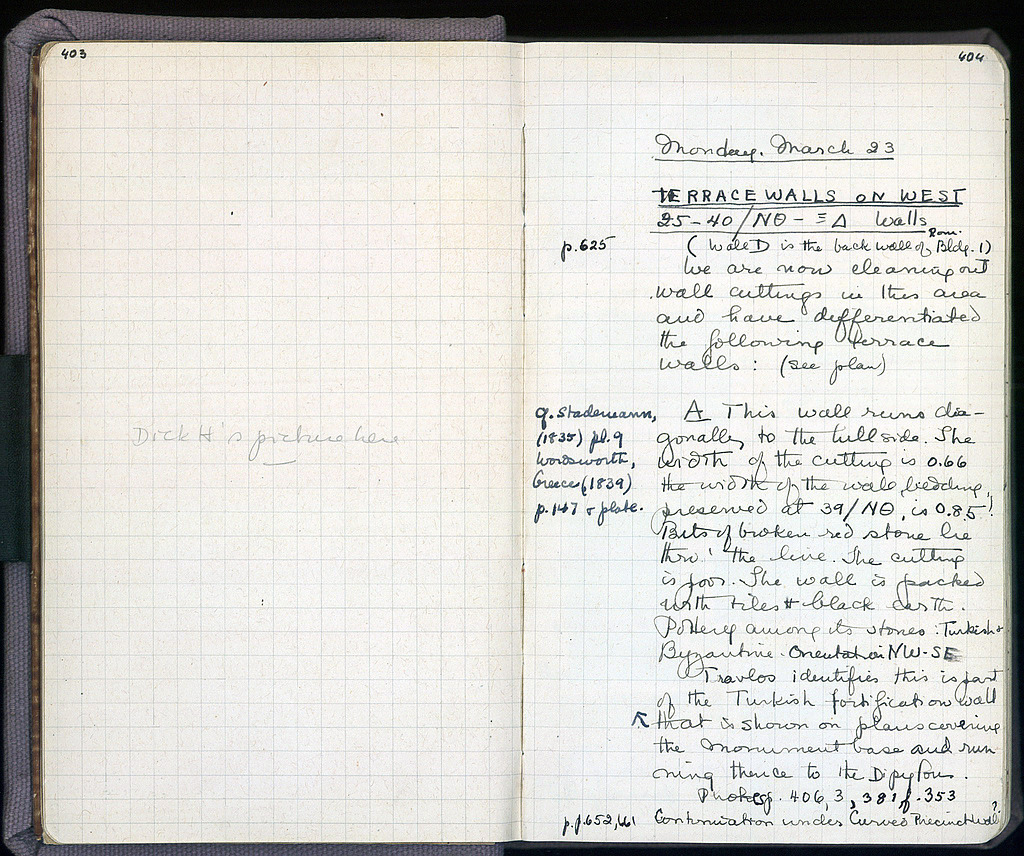 403
Dick H's picture here
404
Monday. March 23
TERRACE WALLS ON WEST
25-40/ΝΘ - ΞΔ Walls
p.625
Rom.
(Wall D is the back wall of Bldg. 1)
We are now cleaning out
wall cuttings in this area
and have differentiated
the following terrace
walls: (see plan)
A This wall runs dia-
gonally to the hillside. The
width of the cutting is 0.66
the width of the wall bedding,
preserved at 39/ΝΘ, is 0.85!
Bits of broken red stone lie
thro' the line. The cutting
is poor. The wall is packed
with tiles + black earth.
Pottery among its stones: Turkish +
Byzantine. Orientation NW-SE
Travlos identifies this is part
of the Turkish fortification wall
that is shown on plans covering
the Monument base and run
ning thence to the Dipylon.
Photog. 406, 3, 381f. 353
p.p. 652, 661 Continuation under Curved Precinct wall?
q. Stademann,
(1835) pl. 9
Wordsworth,
Greece (1839)
p. 147 + plate.